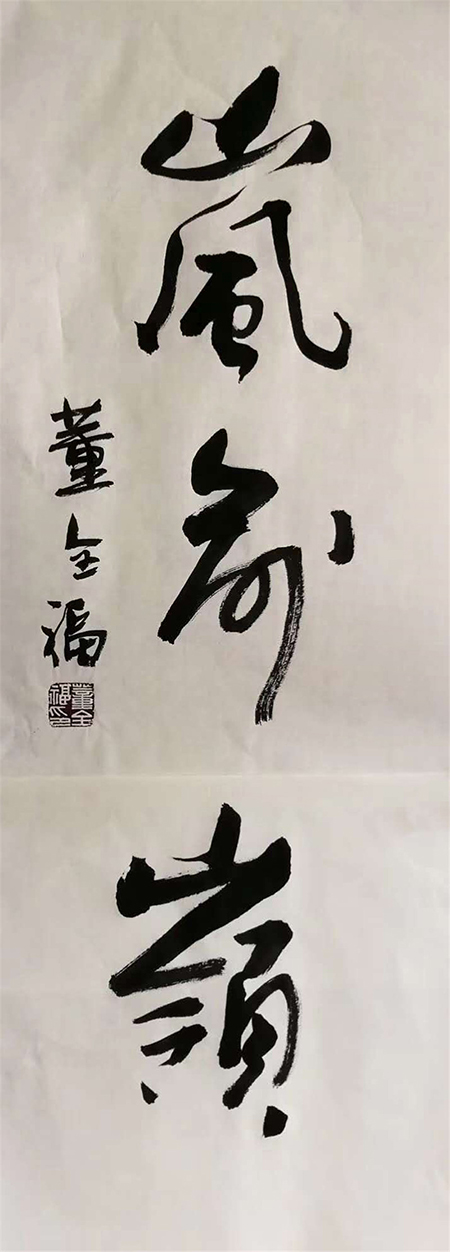 嵐俞嶺
董全福
董全福印